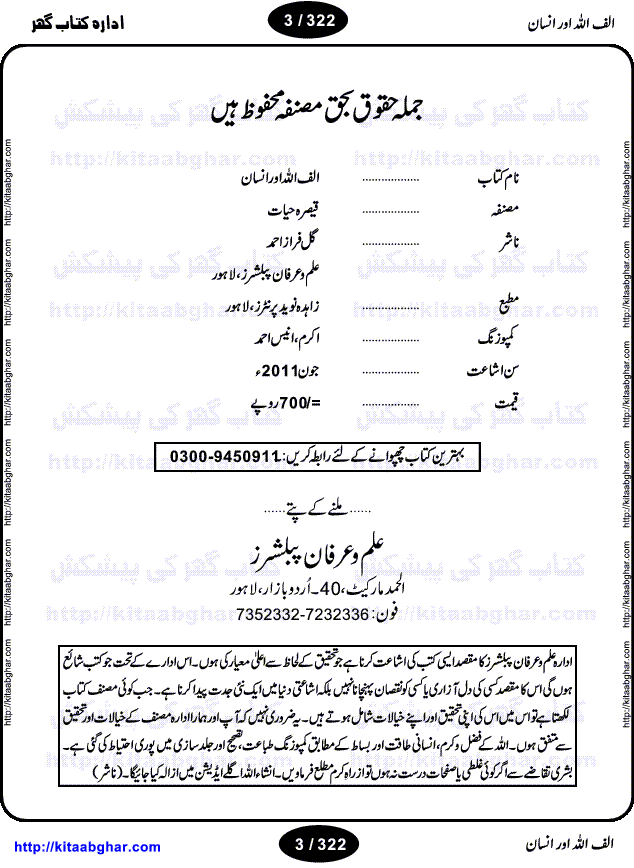 الف اللہ اور انسان
3 / 322
ادارہ کتاب گھر
جملہ حقوق بحق مصنفہ محفوظ ہیں
نام کتاب .................. الف اللہ اور انسان
مصنفہ .................. قیصرہ حیات
ناشر .................. گل فراز احمد
علم و عرفان پبلشرز، لاہور
مطبع .................. زاہدہ نوید پرنٹرز، لاہور
کمپوزنگ .................. اکرم، انیس احمد
سن اشاعت .................. جون 2011ء
قیمت .................. 700/= روپے
بہترین کتاب چھپوانے کے لئے رابطہ کریں: 0300-9450911
...... ملنے کے پتے ......
علم و عرفان پبلشرز
الحمد مارکیٹ، 40۔ اُردو بازار، لاہور
فون: 7352332-7232336
ادارہ علم و عرفان پبلشرز کا مقصد ایسی کتب کی اشاعت کرنا ہے جو تحقیق کے لحاظ سے اعلیٰ معیار کی ہوں۔ اس ادارے کے تحت جو کتب شائع
ہوں گی اس کا مقصد کسی کی دل آزاری یا کسی کو نقصان پہنچانا نہیں بلکہ اشاعتی دنیا میں ایک نئی جدت پیدا کرنا ہے۔ جب کوئی مصنف کتاب
لکھتا ہے تو اس میں اس کی اپنی تحقیق اور اپنے خیالات شامل ہوتے ہیں۔ یہ ضروری نہیں کہ آپ اور ہمارا ادارہ مصنف کے خیالات اور تحقیق
سے متفق ہوں۔ اللہ کے فضل و کرم، انسانی طاقت اور بساط کے مطابق کمپوزنگ طباعت، تصحیح اور جلد سازی میں پوری احتیاط کی گئی ہے۔
بشری تقاضے سے اگر کوئی غلطی یا صفحات درست نہ ہوں تو از راہ کرم مطلع فرماویں۔ انشاء اللہ اگلے ایڈیشن میں ازالہ کیا جائیگا۔ (ناشر)
الف اللہ اور انسان
3 / 322
http://kitaabghar.com